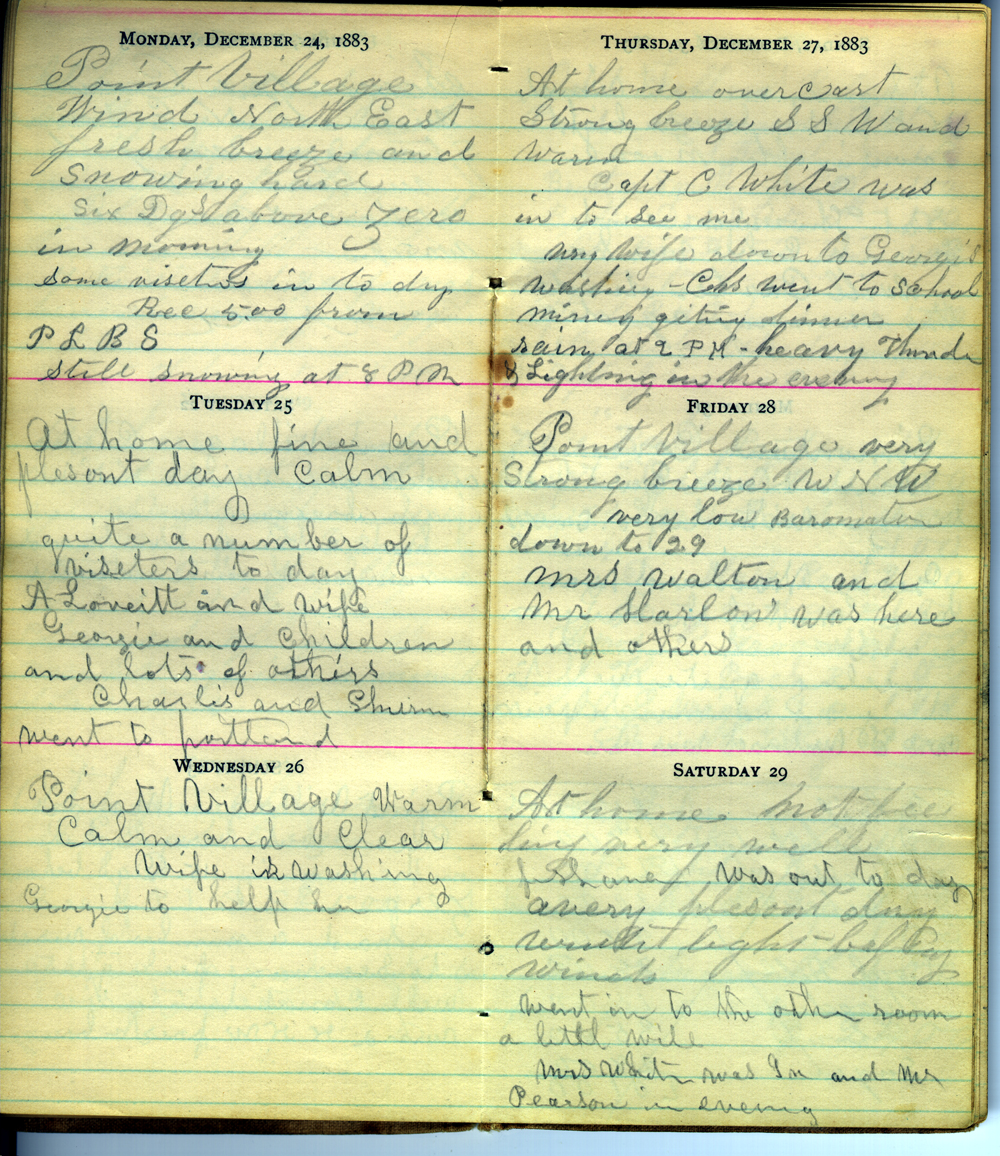 MONDAY, DECEMBER 24, 1883
Point Village
Wind North East
fresh breeze and
Snowing hard
Six Dgs above Zero
in morning
some viseters in to day
Rec 5.00 from
P L B S
still snowing at 8 P M
TUESDAY 25
At home fine and
plesont day Calm
quite a number of
viseters to day
A Loveitt and wife
Georgie and Children
and lots of others
Charlis and
went to portland
WEDNESDAY 26
Point Village Warm
Calm and Clear
Wife is washing
Georgie to help her
THURSDAY, DECEMBER 27, 1883
At home overcast
Strong breeze S S W and
Warm
Capt C White was
in to see me
my wife down to Georgis
washing - Chs went to School
geting dinner
rain at 2 PM - heavy Thunder
& Lighting in the evening
FRIDAY 28
Point Village very
Strong breeze W N W
very low Baromater
down to 29
mrs walton and
Mr Harlow was here
and others
SATURDAY 29
At home not fee
ling very well
was out to day
a very plesont day
light
winds
went in to the other room
a littl wile
Mrs White was In and Mr
Pearson in evening